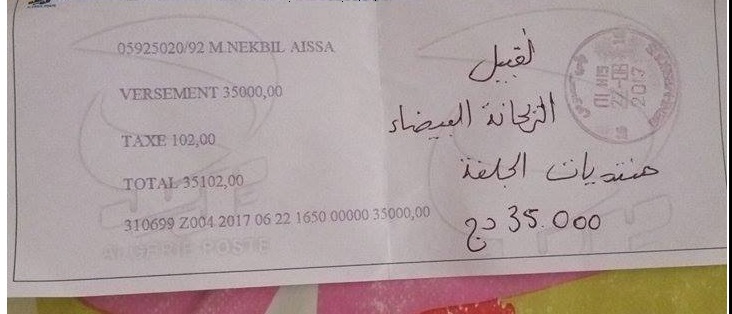 05925020/92 M.NEKBIL AISSA
VERSEMENT 35000,00
TAXE 102,00
TOTAL 35102,00
310699 Z004 2017 06 22 1650 00000 35000,00
ALGERIE POSTE
لقبيل
الزيحانة البيضاء
منتديات الجلفة
35.000 دج
22-06
2017